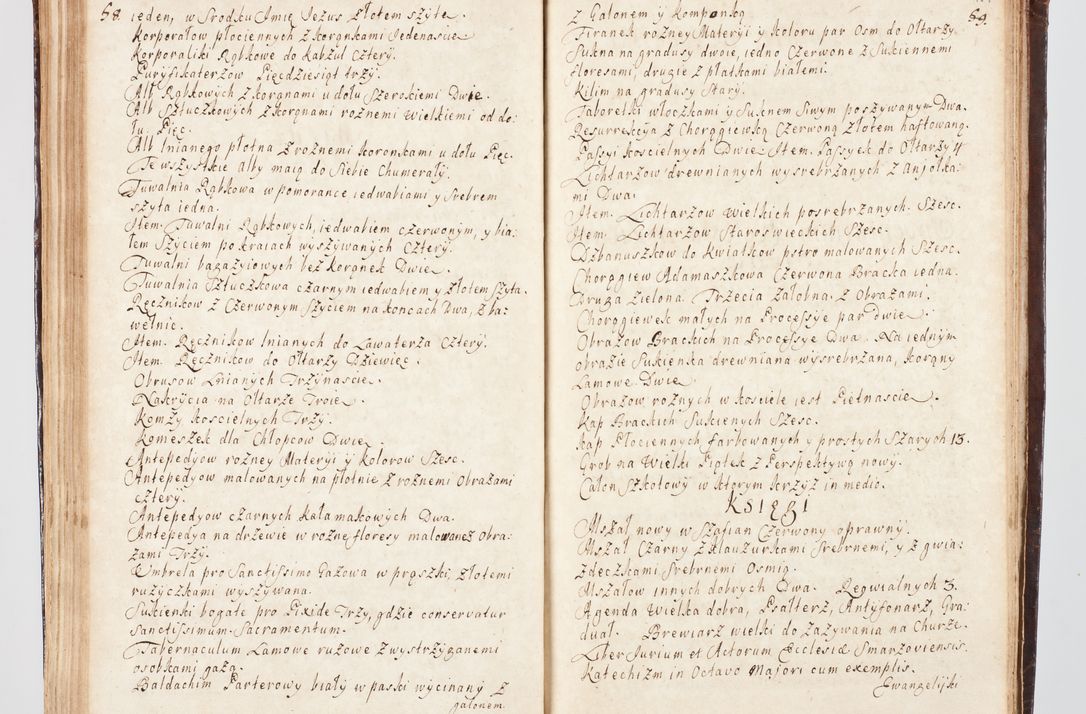 58.
ieden, w Srodku Jmię Jezus Złotem szyte.
Korporałow płociennych z korąnkami Jedenascie
Korporaliki Rąbkowe do Kabzul Cztery.
Puryfikaterzow Pięcdziesiąt trzy.
Alb Rąbkowych z korąnami u dołu Szerokiemi Dwie.
Alb Sztuczkowych z korąnami roznemi wielkiemi od do:
łu Pięc.
Alb lnianego płotna z roznemi koronkami u dołu Pięc.
Te wszystkie Alby maią do siebie Chumerały.
Tuwalnia Rąbkowa w pomorance iedwabiami y Srebrem
szyta iedna.
Item. Tuwalni Rąbkowych, iedwabiem czerwonym, y bia:
łem Szyciem po kraiach wyszywanych Cztery.
Tuwalni bagazyiowych bez korąnek Dwie.
Tuwalnia Sztuczkowa czarnym iedwabiem y złotem szyta.
Ręcznikow z Czerwonym Szyciem na koncach Dwa, z ba:
wełnic.
Item. Ręcznikow lnianych do Lawaterza Cztery.
Item. Ręcznikow do Ołtarzy Dziewięc.
Obrusow Lnianych Trzynascie.
Nakrycia na Ołtarze Troie.
Komzy koscielnych Trzy.
Komeszek dla Chłopcow Dwie.
Antepedyow rozney Materyi y kolorow Szesc.
Antepedyow malowanych na płotnie z roznemi Obrazami
cztery.
Antepedyow czarnych kałamakowych Dwa.
Antepedya na drzewie w rozne floresy malowane z Obra:
zami Trzy.
Umbrela pro Sanctissimo Gazowa w prąszki, złotemi
rużyczkami wyszywana.
Sukienki bogate pro Pixide Trzy, gdzie conservatur
Sanctissimum Sacramentum.
Tabernaculum Lamowe ruzowe z wystrzyganemi
osobkami gaza.
Baldachim Parterowy biały w paski wycinany z
galonem
59.
z Galonem y kompanką
Firanek rozney Materyi y koloru par Osm do Ołtarzy.
Sukna na gradusy dwoie, iedno Czerwone z Sukiennemi
floresami, drugie z płatkami białemi.
Kilim na gradusy Stary.
Taboretki włoczkami y Suknem Siwym poszywanym Dwa.
Resurrekcya z Chorągiewką Czerwoną złotem haftowaną.
Passyi koscielnych Dwie Item. Passyek do Ołtarzy 4
Lichtarzow drewnianych wysrebrzanych z Anjołka:
mi Dwa.
Item. Lichtarzow Wielkich posrebrzanych. Szesc.
Item. Lichtarzow Staroswieckich Szesc.
Dzbanuszkow do kwiatkow pstro malowanych Szesc.
Chorągiew Adamaszkowa Czerwona Bracka iedna.
Druga zielona. Trzecia załobna. z Obrazami.
Chorągiewek małych na Processye par Dwie.
Obrazow Brackich na Processye Dwa. Na iednym
obrazie Sukienka drewniana wysrebrzana, korąny
Lamowe Dwie.
Obrazow roznych w kosciele iest Piętnascie.
Kap Brackich Sukienych Szesc.
Kap Płociennych farbowanych y prostych Szarych 13.
Grob na Wielki Piątek z Perspektywą nowy.
Całon Szkotowy w ktorym krzyz in medio.
KSIĘGI
Mszał nowy w Szafian Czerwony oprawny.
Mszał Czarny z klauzurkami srebrnemi, y z gwia:
zdeczkami srebrnemi Osmią.
Mszałow innych dobrych Dwa. Reqwialnych 3.
Agenda Wielka dobra, Psałterz, Antyfonarz, Gra:
dual. Brewiarz wielki do zazywania na Churze.
Liber Jurium et Actorum Ecclesiæ Smarzoviensis.
Katechizm in Octavo Majori cum exemplis.
Ewangelijki